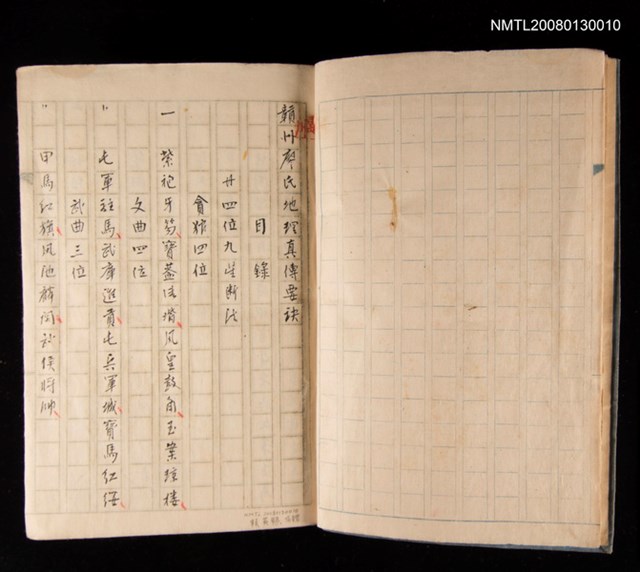 NMTL20080130010
贛州廖氏地理真傳要訣
目錄
廿四位九星斷法
貪狼四位
一 紫袍牙笏寶蓋 凰皇鼓角玉案 樓
文曲四位
〃 屯軍註馬武庫進貢屯兵軍城寶馬紅
武曲三位
〃 甲馬紅旗鳳池 侯將帥